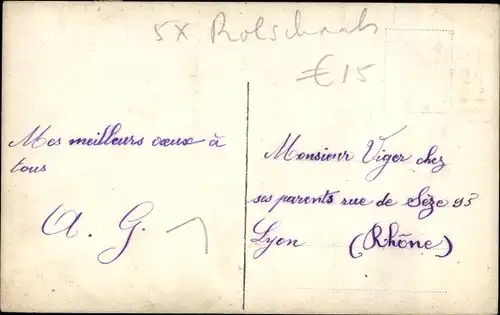 5x Rolschaats
€15
Mes meilleurs vœux à
tous
A. G.
Monsieur Viger chez
ses parents rue de Sèze 93
Lyon (Rhône)